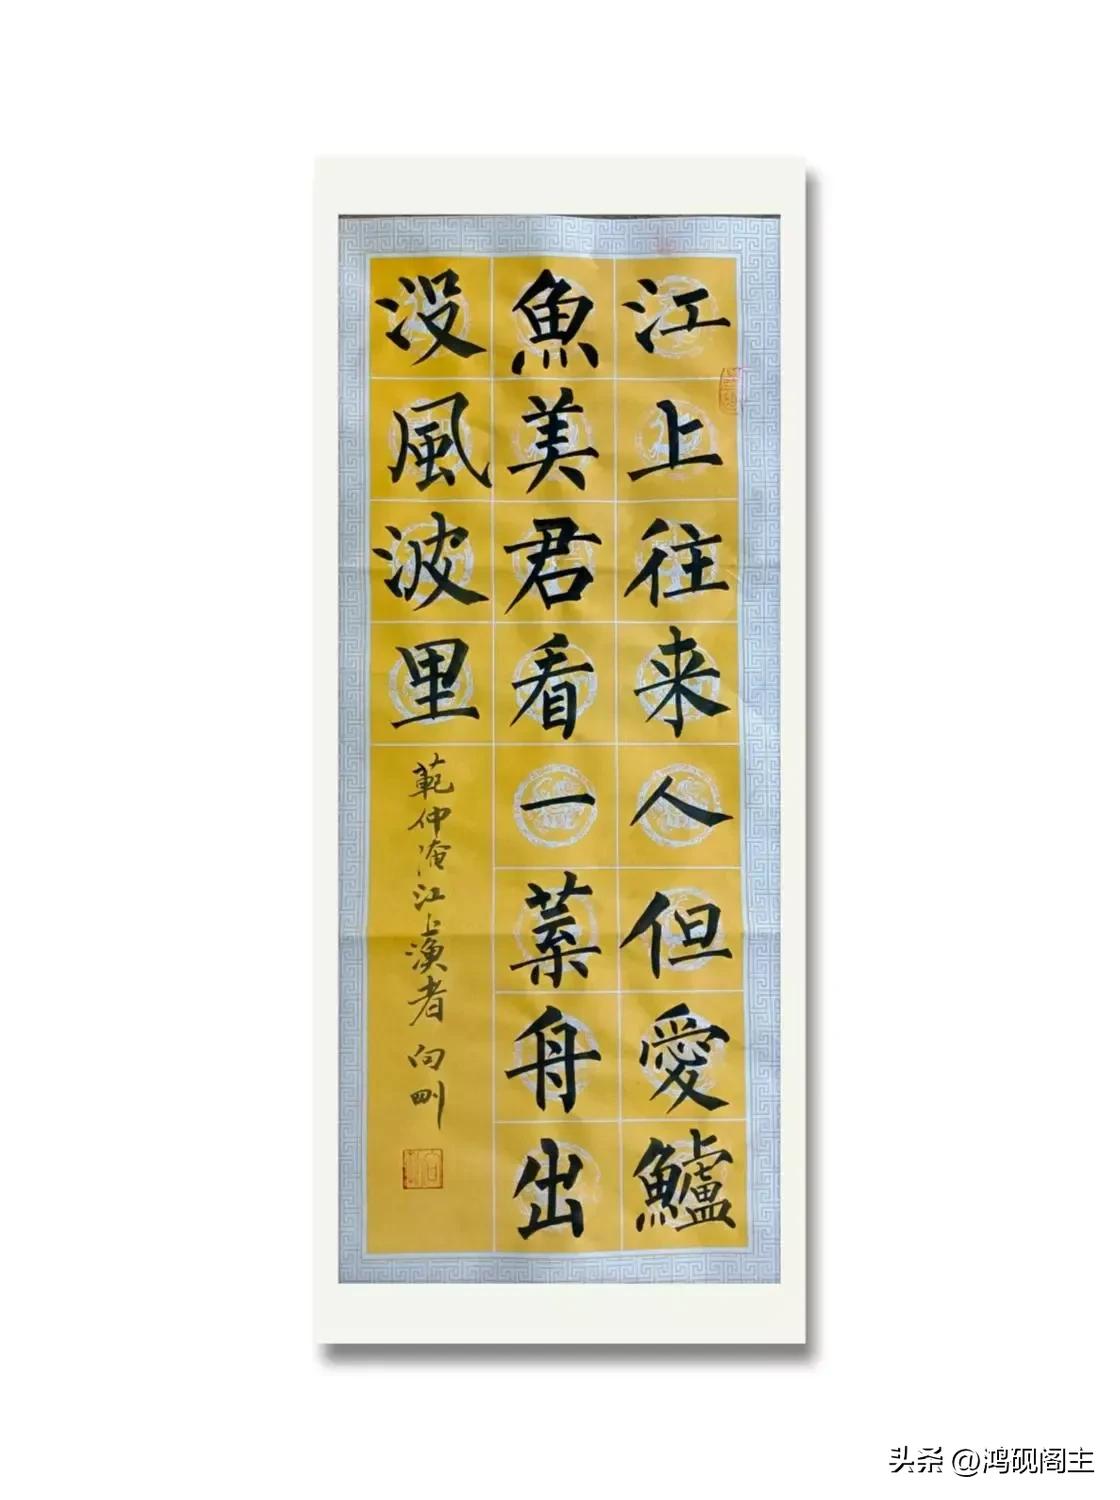 江上往来人但愛鱸
魚美君看一葉舟出
没風波里
範仲淹江上漁者 向剛
头条 @鸿砚阁主